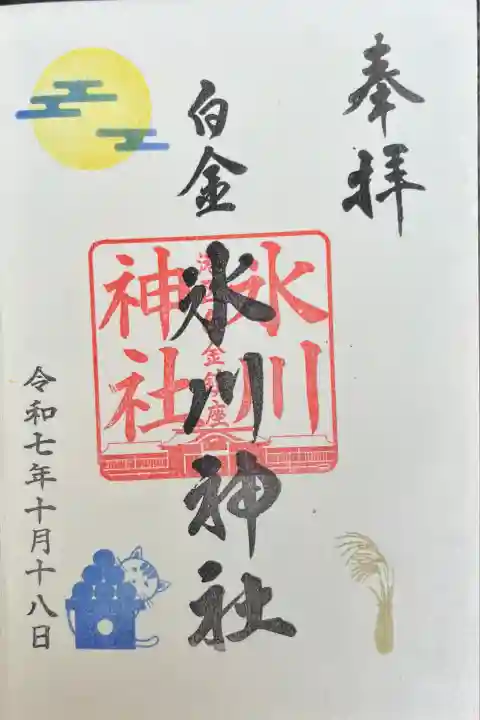 奉拝
白金
氷川神社
氷川
神社
金鎮座
令和七年十月十八日